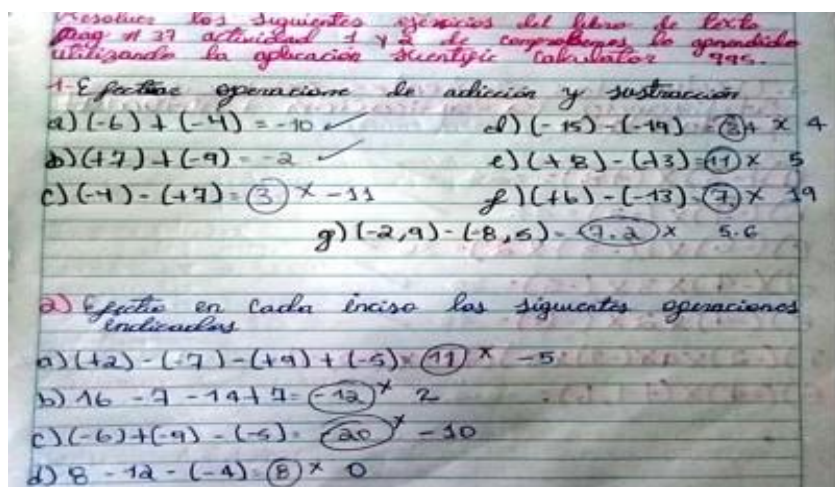 Resolver los siguientes ejercicios del libro de texto
pag # 37 actividad 1 y 2 de comprobemos lo aprendido
utilizando la aplicación Scientific Calculator 995.
1-Efectúe operacione de adicción y sustracción
a) (-6) + (-4) = -10 ✓
b) (+7) + (-9) = -2 ✓
c) (-4) - (+7) = 3 x -11
d) (-15) - (-19) = 34 x 4
e) (+8) - (+3) = 11 x 5
f) (+6) - (-13) = 7 x 19
g) (-2,9) - (-8,5) = 7.2 x 5.6
2) Efectúo en cada inciso las siguientes operaciones
indicadas
a) (+2) - (-7) - (+9) + (-5) = 11 x -5
b) 16 - 7 - 14 + 7 = -12 x 2
c) (-6) + (-9) - (-5) = -20 x -10
d) 8 - 12 - (-4) = 8 x 0